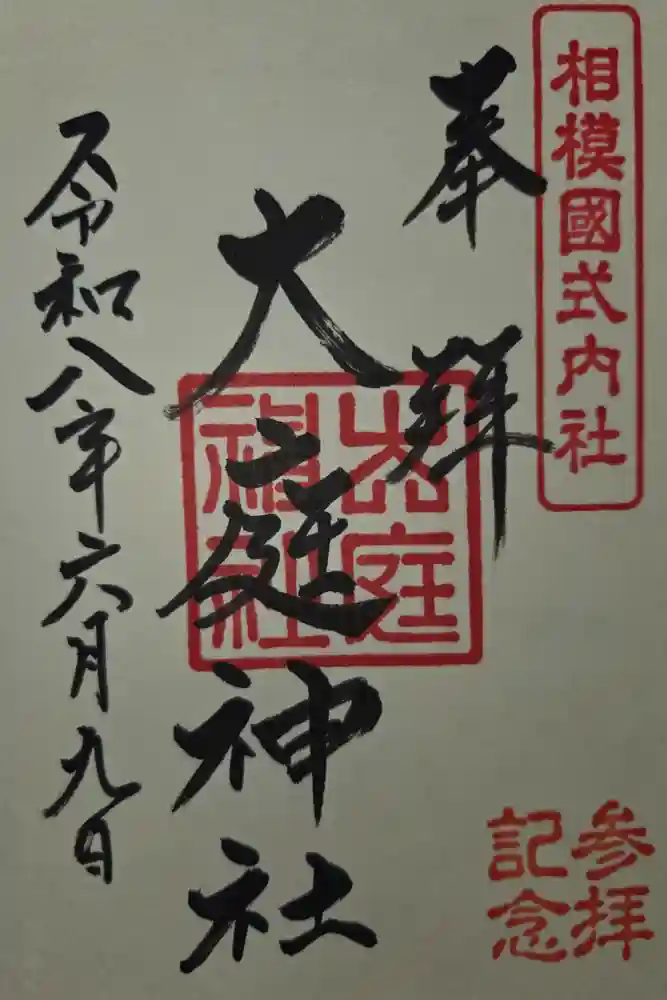 相模國式内社
奉拜
大庭神社
大庭
神社
令和八年六月九日
参拝
記念